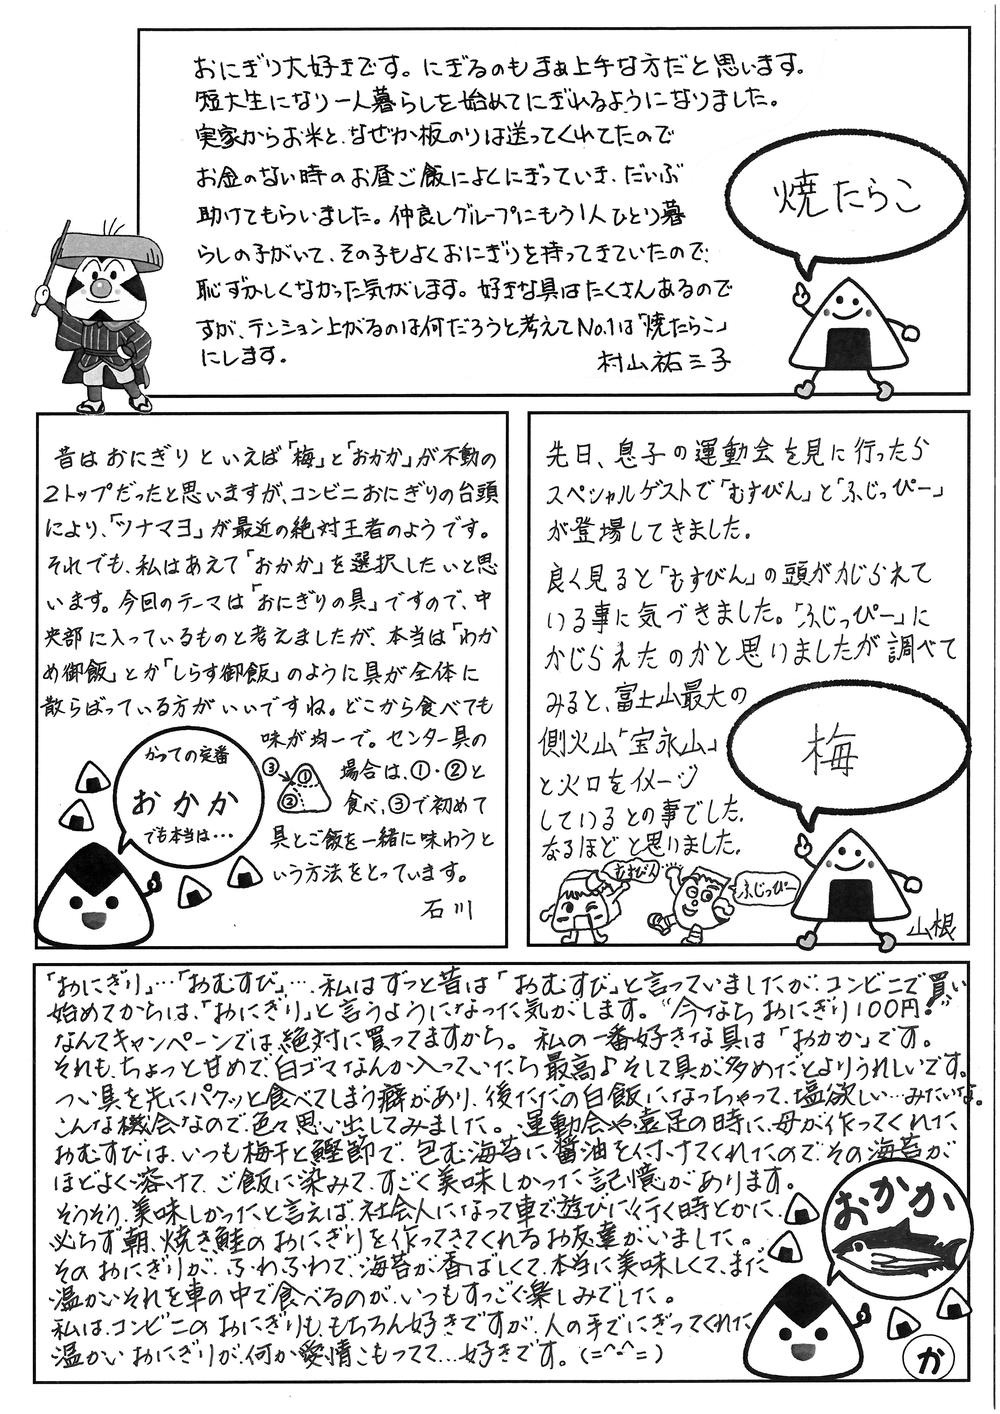 おにぎり大好きです。にぎるのもまぁ上手な方だと思います。
短大生になり一人暮らしを始めてにぎれるようになりました。
実家からお米と、なぜか板のりは送ってくれてたので
お金のない時のお昼ご飯によくにぎっていき、だいぶ
助けてもらいました。仲良しグループにもう1人ひとり暮
らしの子がいて、その子もよくおにぎりを持ってきていたので、
恥ずかしくなかった気がします。好きな具はたくさんあるので
すが、テンション上がるのは何だろうと考えてNo.1は「焼たらこ」
にします。
村山祐三子
焼たらこ
昔はおにぎりといえば「梅」と「おかか」が不動の
2トップだったと思いますが、コンビニおにぎりの台頭
により、「ツナマヨ」が最近の絶対王者のようです。
それでも、私はあえて「おかか」を選択したいと思
います。今回のテーマは「おにぎりの具」ですので、中
央部に入っているものと考えましたが、本当は「わか
め御飯」とか「しらす御飯」のように具が全体に
散らばっている方がいいですね。どこから食べても
味が均一で。センター具の
場合は、①・②と
食べ、③で初めて
具とご飯を一緒に味わうと
いう方法をとっています。
石川
③
①
②
かつての定番
おかか
でも本当は…
先日、息子の運動会を見に行ったら
スペシャルゲストで「むすびん」と「ふじっぴー」
が登場してきました。
良く見ると「むすびん」の頭がかじられて
いる事に気づきました。「ふじっぴー」に
かじられたのかと思いましたが調べて
みると、富士山最大の
側火山「宝永山」
と火口をイメージ
しているとの事でした。
なるほどと思いました。
梅
むすびん
ふじっぴー
山根
「おにぎり」…「おむすび」…私はずっと昔は「おむすび」と言っていましたが、コンビニで買い
始めてからは、「おにぎり」と言うようになった気がします。“今ならおにぎり100円!”
なんてキャンペーンでは、絶対に買ってますから。私の一番好きな具は「おかか」です。
それも、ちょっと甘めで、白ゴマなんか入っていたら最高♪そして具が多めだとよりうれしいです。
つい具を先にパクッと食べてしまう癖があり、後ただの白飯になっちゃって、塩欲しい…みたいな。
こんな機会なので、色々思い出してみました。運動会や遠足の時に、母が作ってくれた
おむすびは、いつも梅干と鰹節で、包む海苔に醤油を付けてくれたので、その海苔が
ほどよく溶けて、ご飯に染みて、すごく美味しかった記憶があります。
そうそう、美味しかったと言えば、社会人になって車で遊びに行く時とかに、
必らず朝、焼き鮭のおにぎりを作ってきてくれるお友達がいました。
そのおにぎりが、ふわふわで、海苔が香ばしくて、本当に美味しくて、まだ
温かいそれを車の中で食べるのが、いつもすっごく楽しみでした。
私は、コンビニのおにぎりも、もちろん好きですが、人の手でにぎってくれた
温かいおにぎりが、何か愛情こもってて…好きです。(=^-^=)
おかか
か